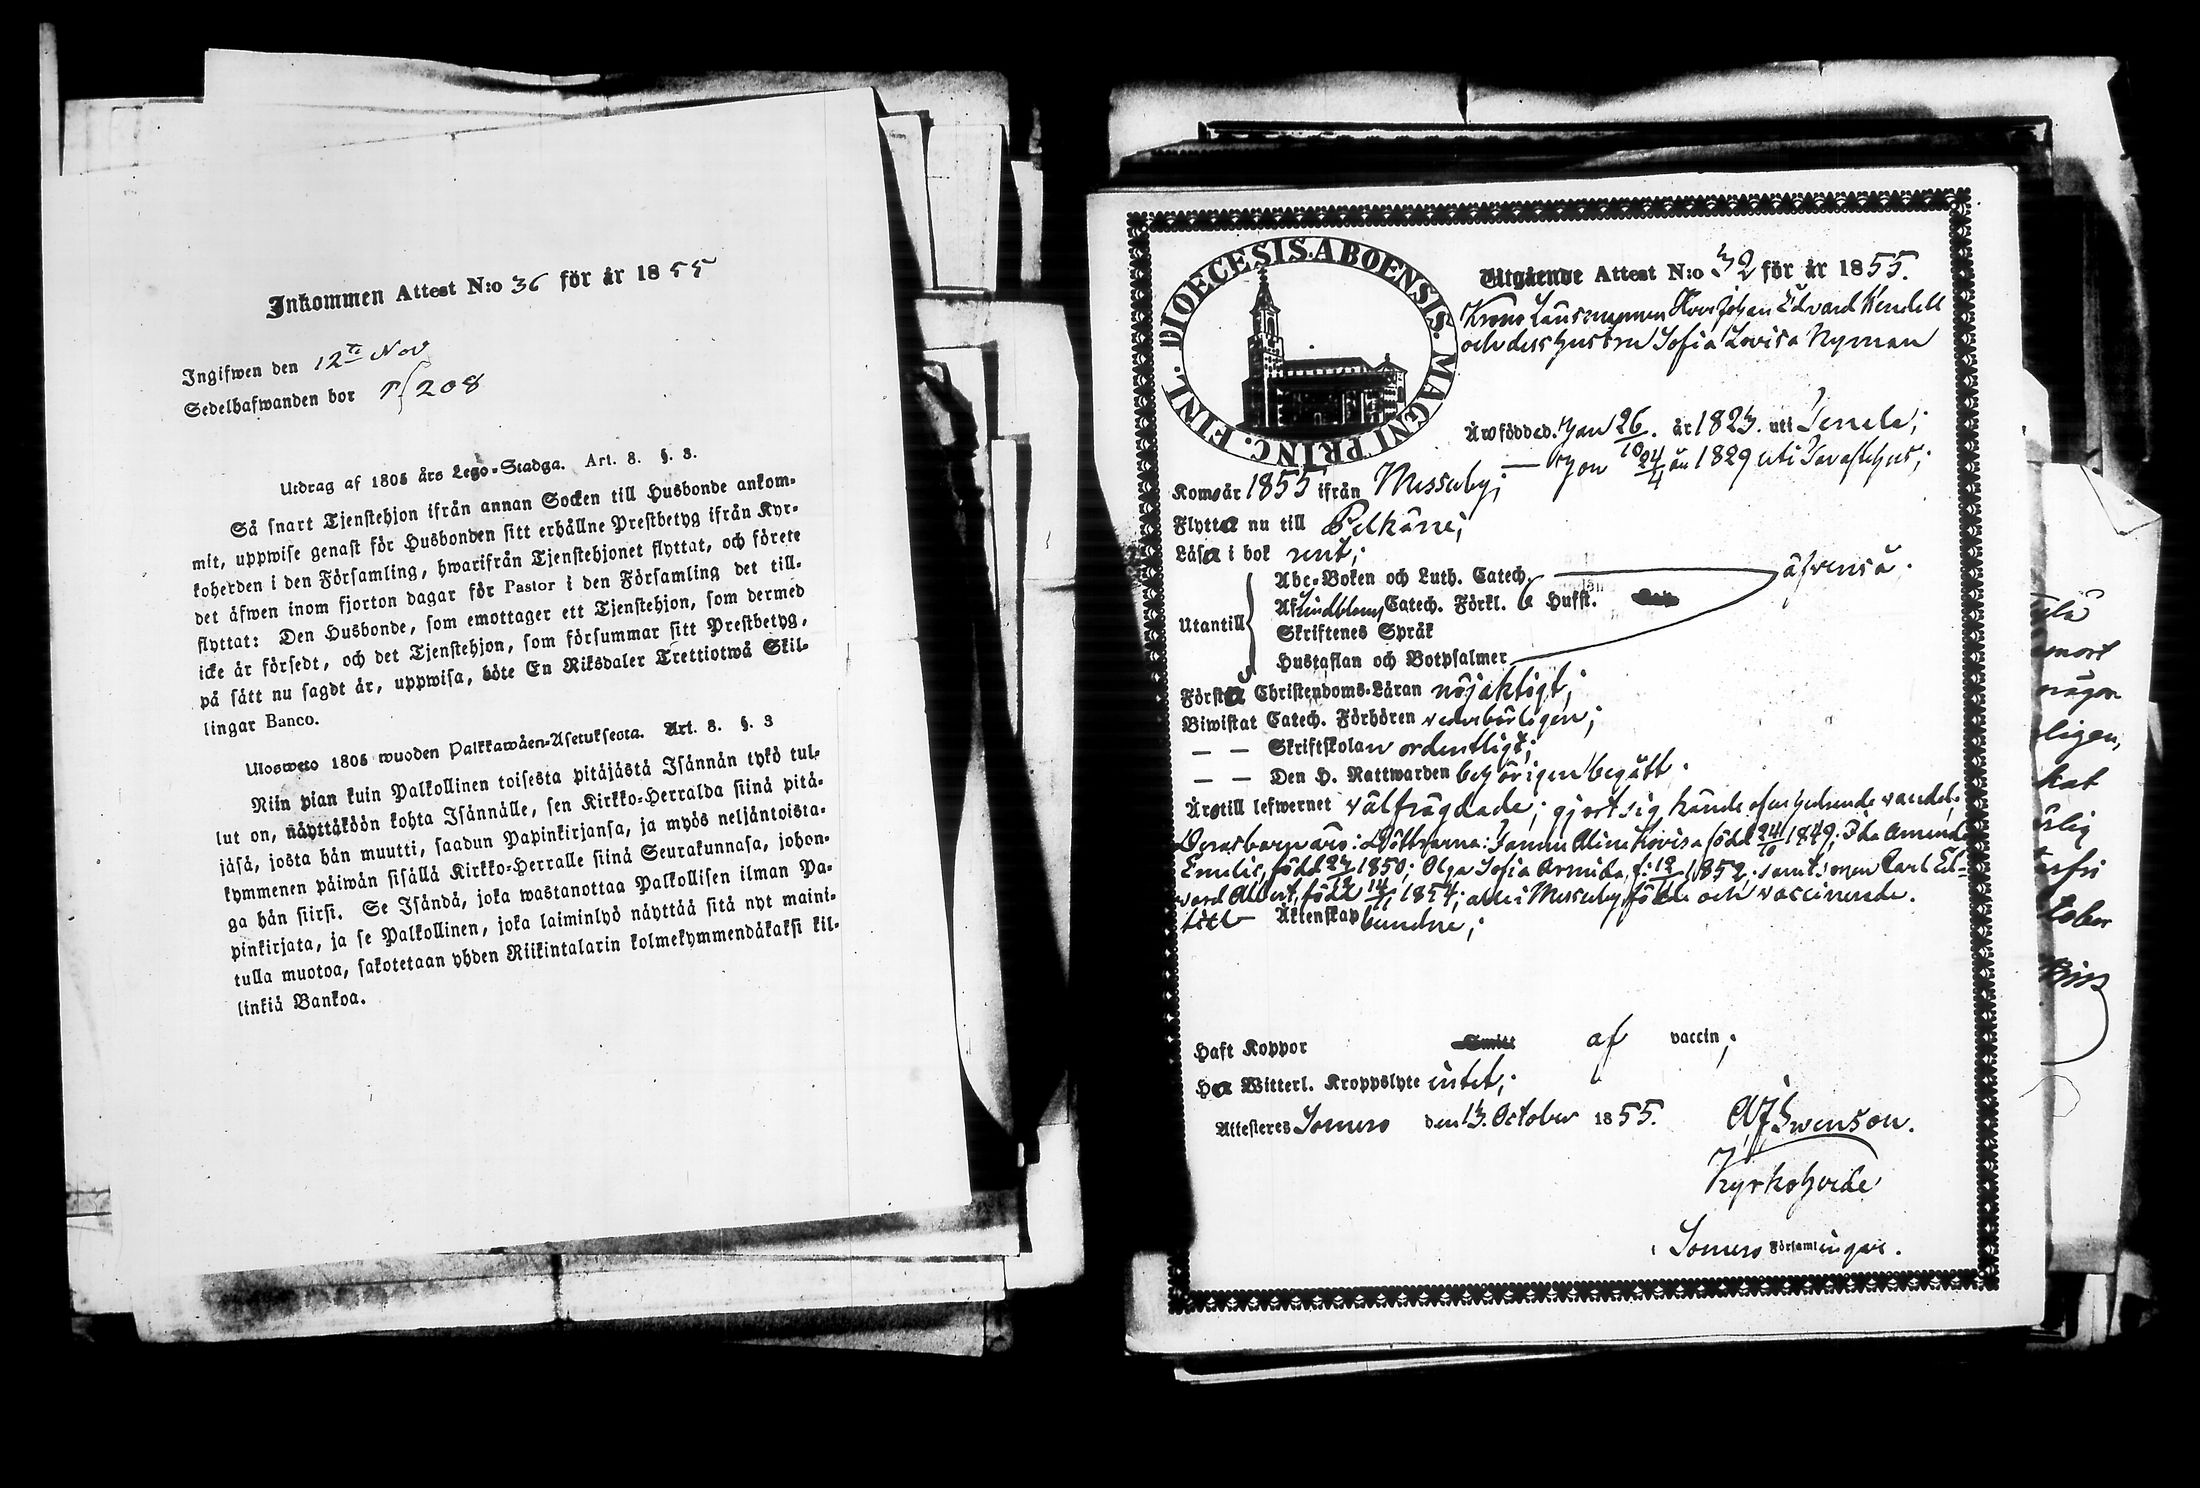 Inkommen Attest N:o 36 för år 1855
Ingifwen den 12te Nov
Sedelhafwanden bor 208
Utdrag af 1805 års Lego-Stadga. Art. 8. §. 3.
Så snart Tjenstehjon ifrån annan Socken till Husbonde ankom-
mit, uppwise genast för Husbonden sitt erhållne Prestbetyg ifrån Kyr-
koherden i den Församling, hwarifrån Tjenstehjonet flyttat, och förete
det äfwen inom fjorton dagar för Pastor i den Församling det till-
flyttat: Den Husbonde, som emottager ett Tjenstehjon, som dermed
icke är försedt, och det Tjenstehjon, som försummar sitt Prestbetyg,
på sätt nu sagdt är, uppwisa, böte En Riksdaler Trettiotwå Skil-
lingar Banco.
Ulosweto 1805 wuoden Palkkawäen-Asetuksesta. Art. 8. §. 3
Niin pian kuin Palkollinen toisesta pitäjästä Isännän tykö tul-
lut on, näyttäköön kohta Isännälle, sen Kirkko-Herralda siinä pitä-
jäsä, josta hän muutti, saadun Papinkirjansa, ja myös neljäntoista-
kymmenen päiwän sisällä Kirkko-Herralle siinä Seurakunnasa, johon-
ga hän siirsi. Se Isändä, joka wastanottaa Palkollisen ilman Pa-
pinkirjata, ja se Palkollinen, joka laiminlyö näyttää sitä nyt maini-
tulla muotoa, sakotetaan yhden Riikintalarin kolmekymmendäkaksi kil-
linkiä Bankoa.
DIOECESIS. ABOENSIS. MAGNI PRINC. FINL.
Utgående Attest N:o 32 för år 1855.
Krono Länsmannen Johan Edvard Wendell
och dess hustru Sofia Lovisa Nyman
Äro född d. 26/10 år 1823 uti
24/4 år 1829 uti Tavastehus;
Kom år 1855 ifrån Messuby;
Flytta nu till Pelkäne;
Läsa i bok rent;
Utantill
Abc-Boken och Luth. Catech.
Af Lindbloms Catech. Förkl. 6 Hufst.
Skriftenes Språk
Hustaflan och Botpsalmer
äfvenså.
Förstå Christendoms-Läran nöjaktigt;
Biwistat Catech. Förhören vederbörligen;
— — Skriftskolan ordentligt;
— — Den H. Nattwarden behörigen begått.
Äro till lefwernet välfrägdade; gjort sig kände af en hedrande vandel.
Deras barn äro: Döttrarna: Alina Lovisa född 24/10 1849; Ida Amanda
Emelie, född 1850; Olga Sofia Armida, f: 1852 samt sonen Carl Ed-
vard Albert, född 14/11 1854; alla i Messuby födde och vaccinerade.
till Äktenskap bundne;
Haft Koppor af vaccin;
Ha Witterl. Kroppslyte intet;
Attesteres Somero den 13. October 1855.
Swenson.
Kyrkoherde
i Somero Församlingar.